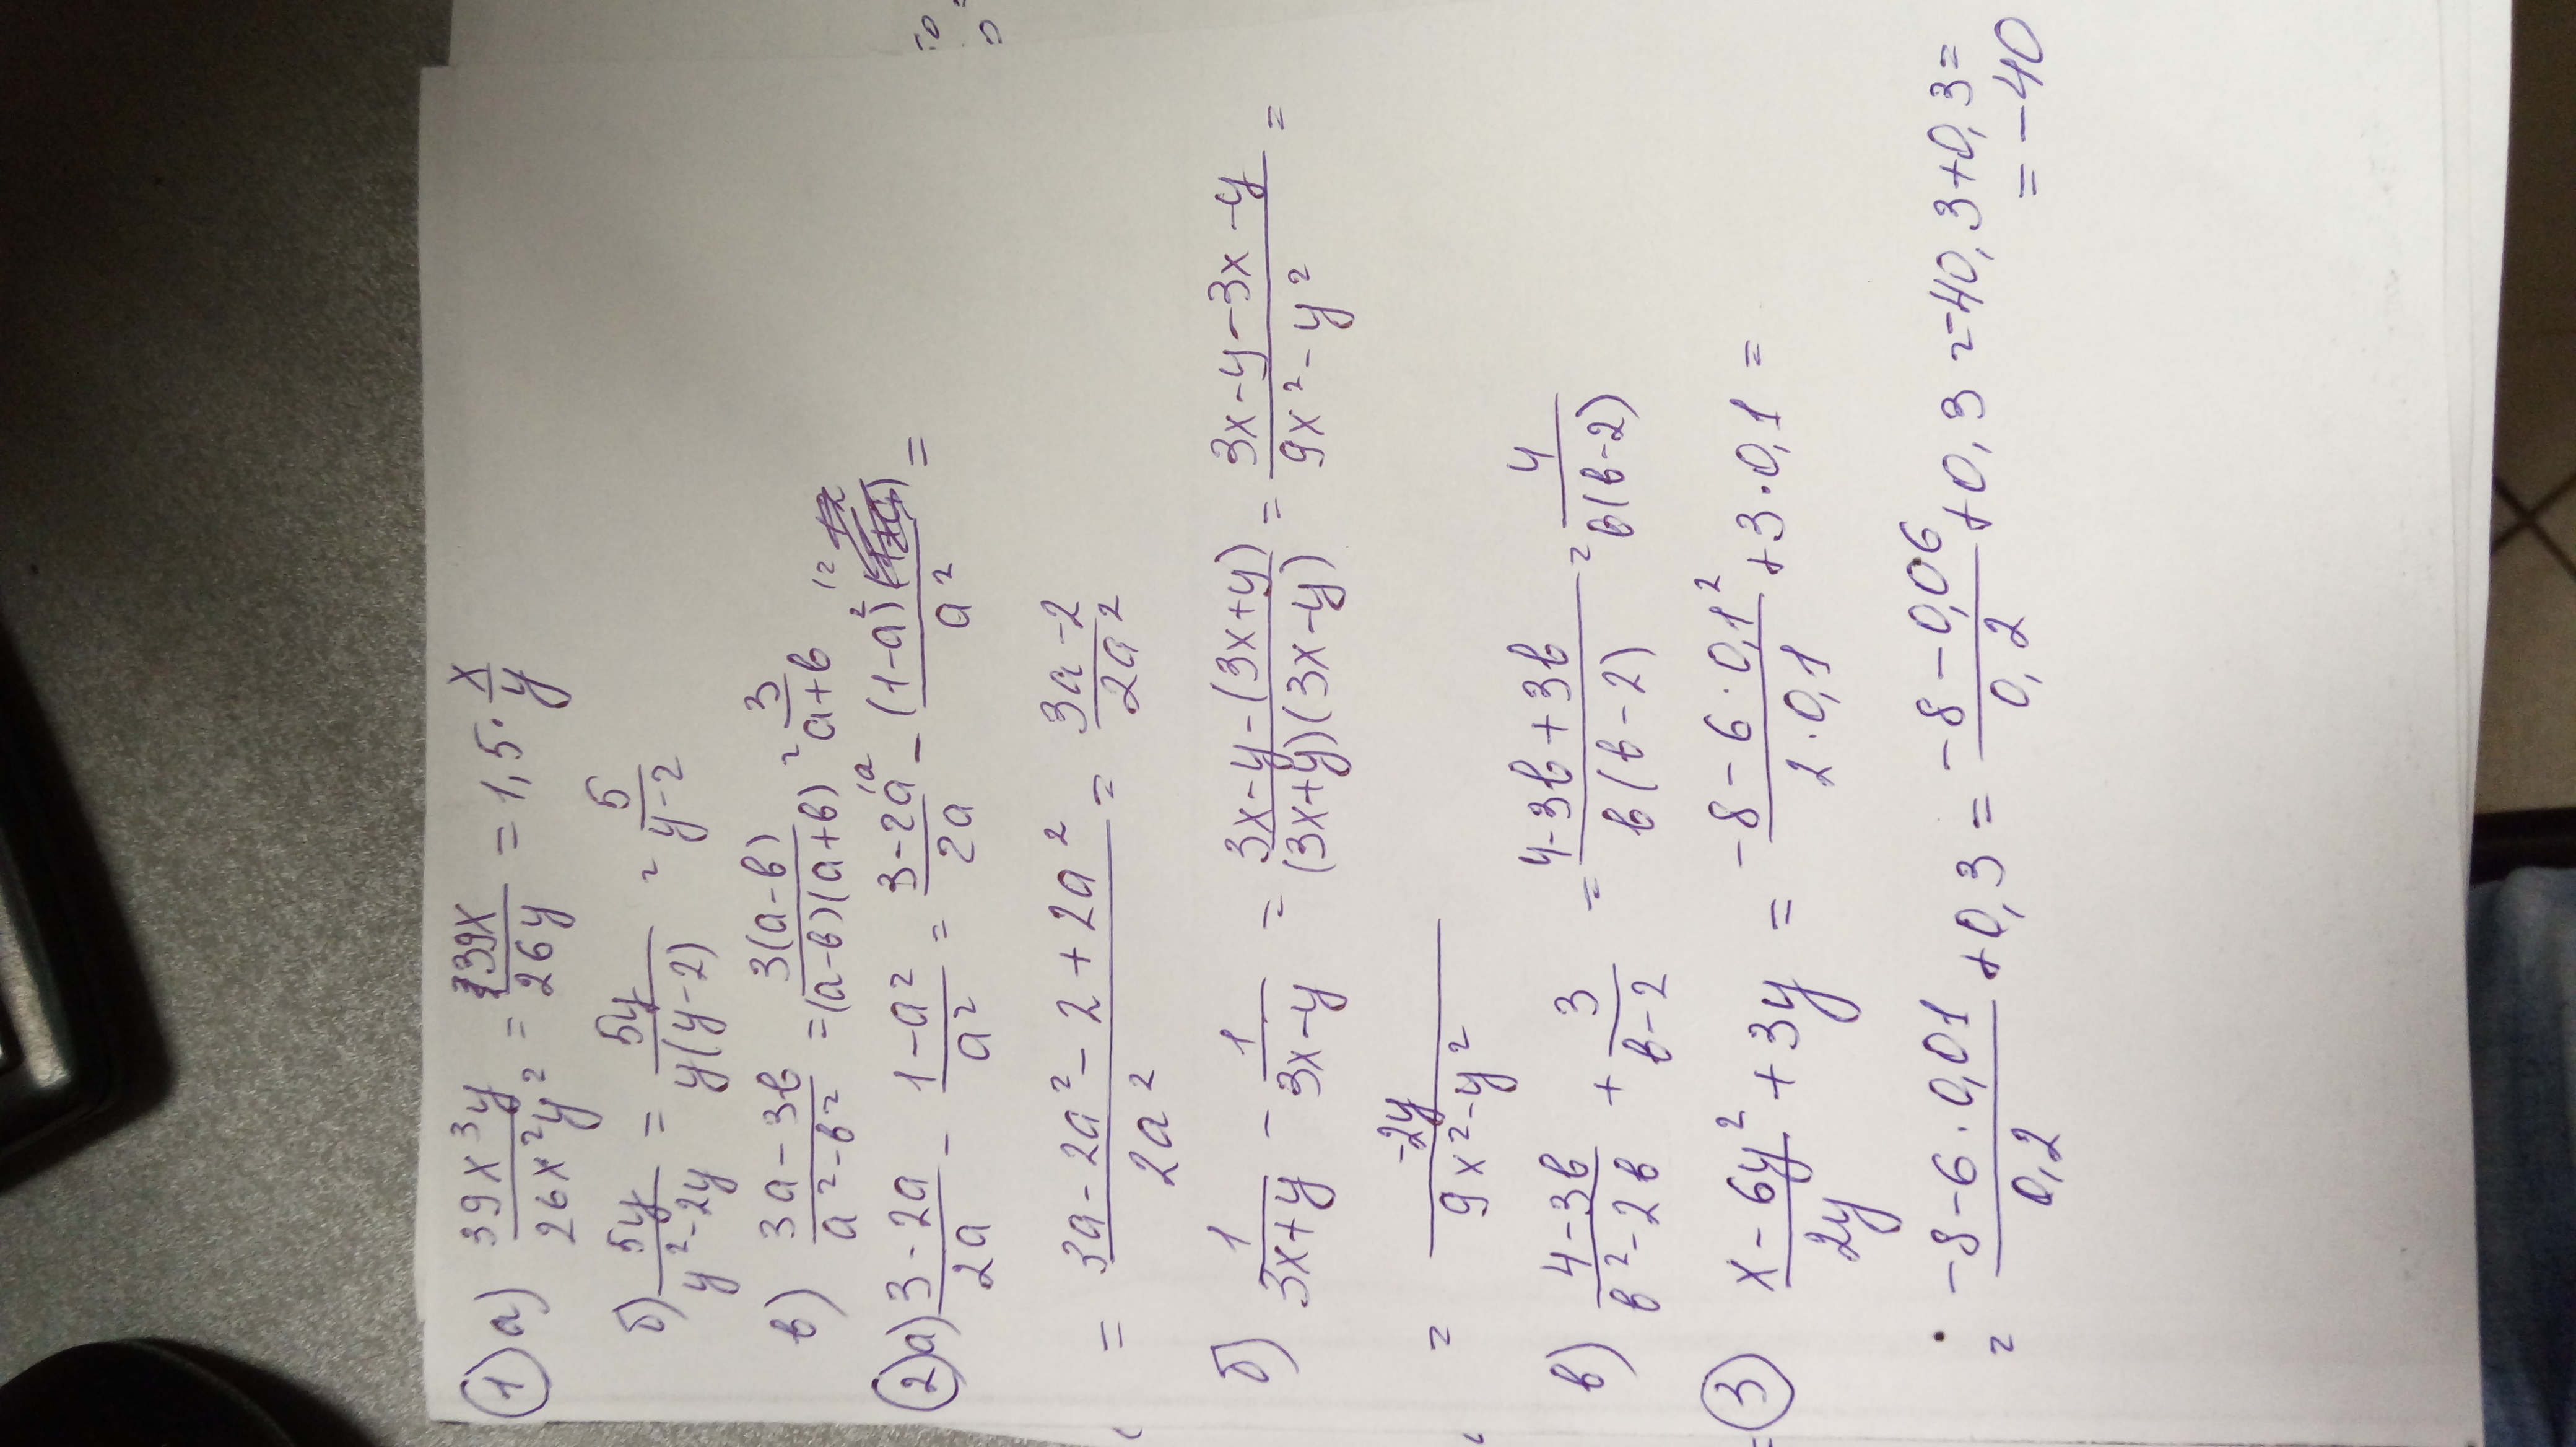 1) а) 39x³y/26x²y² = 39x/26y = 1,5 · x/y
б) 5y/y²-2y = 5y/y(y-2) = 5/y-2
в) 3a-3b/a²-b² = 3(a-b)/(a-b)(a+b) = 3/a+b
2) а) 3-2a/2a - 1-a²/a² = 3-2a/2a - (1-a²)/a² =
= 3a-2a²-2+2a²/2a² = 3a-2/2a²
б) 1/3x+y - 1/3x-y = 3x-y-(3x+y)/(3x+y)(3x-y) = 3x-y-3x-y/9x²-y² =
= -2y/9x²-y²
в) 4-3b/b²-2b + 3/b-2 = 4-3b+3b/b(b-2) = 4/b(b-2)
3) x-6y²/2y + 3y = -8-6·0,1²/2·0,1 + 3·0,1 =
= -8-6·0,01/0,2 + 0,3 = -8-0,06/0,2 + 0,3 = -40,3+0,3=
= -40